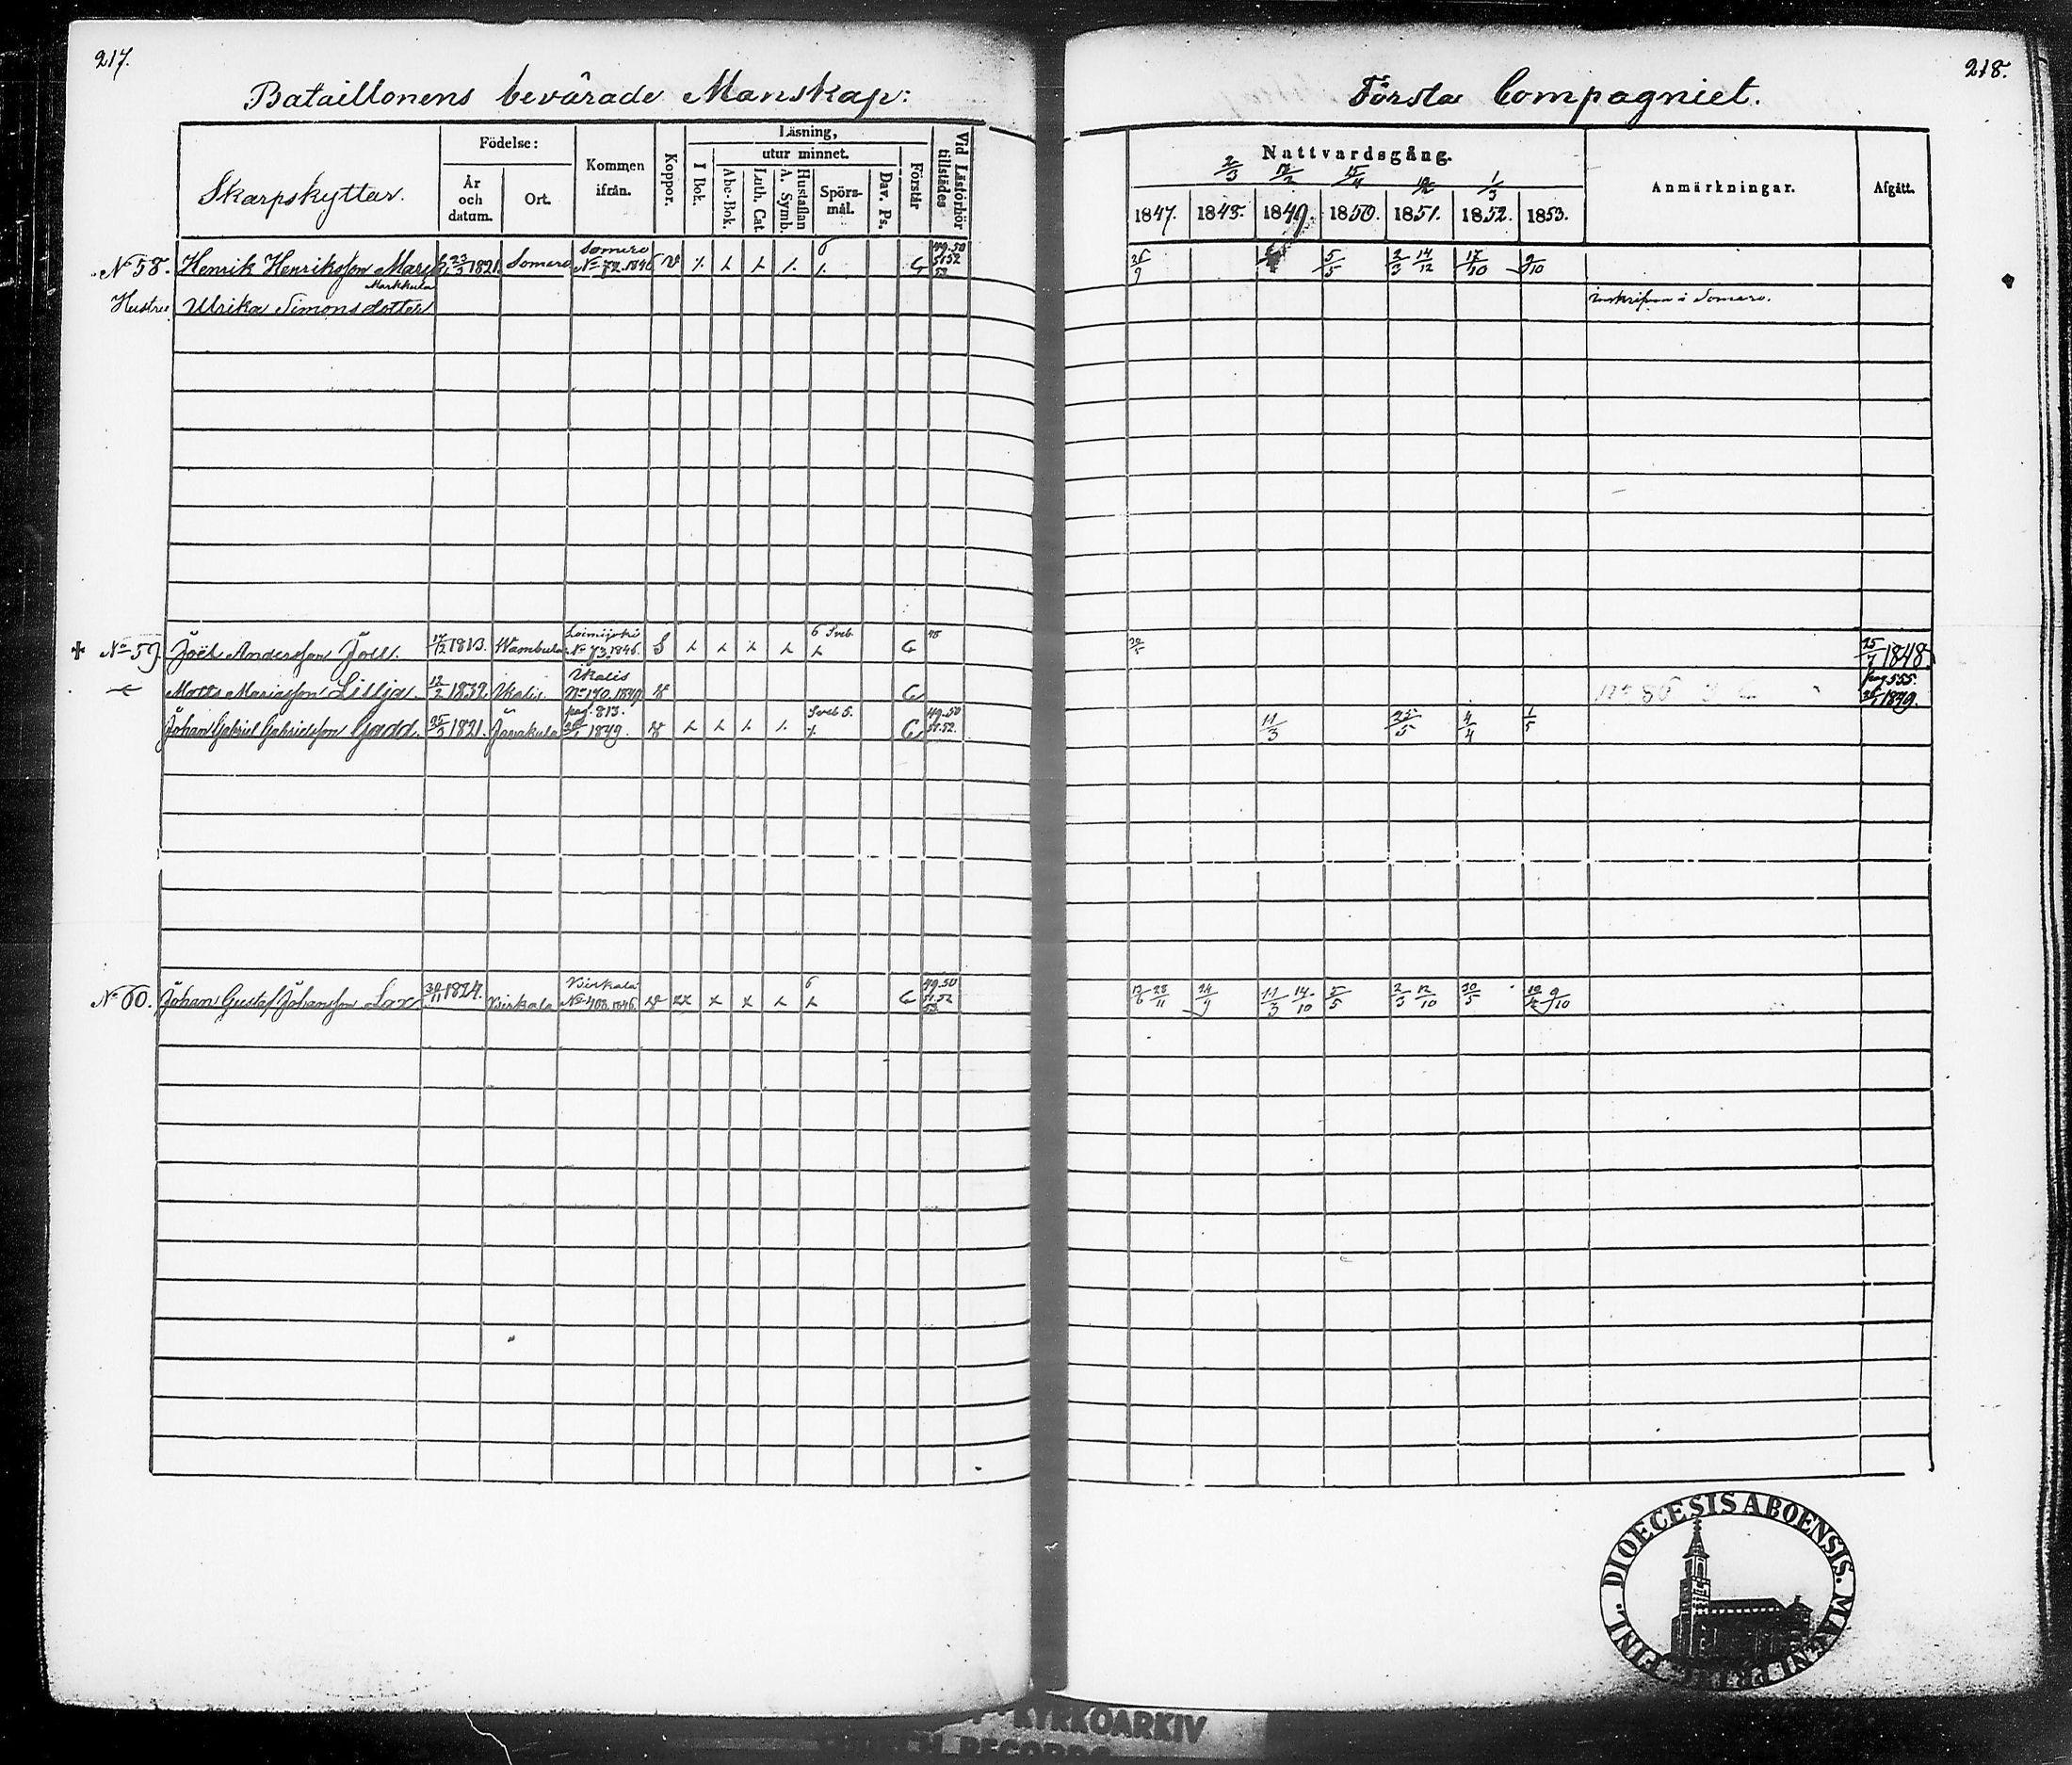 217.
Bataillonens bevärade Manskap:
Skarpskyttar.
Födelse:
År och datum.
Ort.
Kommen ifrån.
Koppor.
Läsning,
I Bok.
utur minnet.
Abc-Bok.
Luth. Cat.
A. Symb. Hustaflan
Spörsmål.
Dav. Ps.
Förstår
Vid Läsförhör tillstädes
N:o 58. Henrik Henriksson 23 1821. Somero Somero N:o 72. 1846 v 6 G 49.50 51.52 53
Markkula
Hustru Ulrika Simonsdotter
+ N:o 59. Joël Andersson Joell. 17/12 1813. Wambula Loimijoki N:o 73. 1846. S 6 Sveb G 48
Matts Mariasson Lillja. 12/2 1832 Ikalis Ikalis N:o 170. 1847 v G
Johan Gabriel Gabrielsson Gadd. 25/3 1821. Janakula pag. 813. 1849. v Sveb 5. G 49.50 51.52.
N:o 60. Johan Gustaf Johansson Lax. 30/11 1824. Virkala Virkala N:o 403. 1846. v 6 G 49.50 51.52 53
218.
Första Compagniet.
Nattvardsgång.
2/3 15/4 1/3
1847. 1848. 1849. 1850. 1851. 1852. 1853.
Anmärkningar.
Afgått.
26/9 5/5 2/3 14/12 17/10 9/10
inskrifven i Somero.
25/7 1848
pag 555.
1849.
11/3 25/5 4/4 1/5
17/6 28/11 24/9 11/3 14/10 5/5 2/3 12/10 30/5 9/10
DIOECESIS ABOENSIS. MAGNI PRINC. FINL.
KYRKOARKIV
CHURCH RECORDS